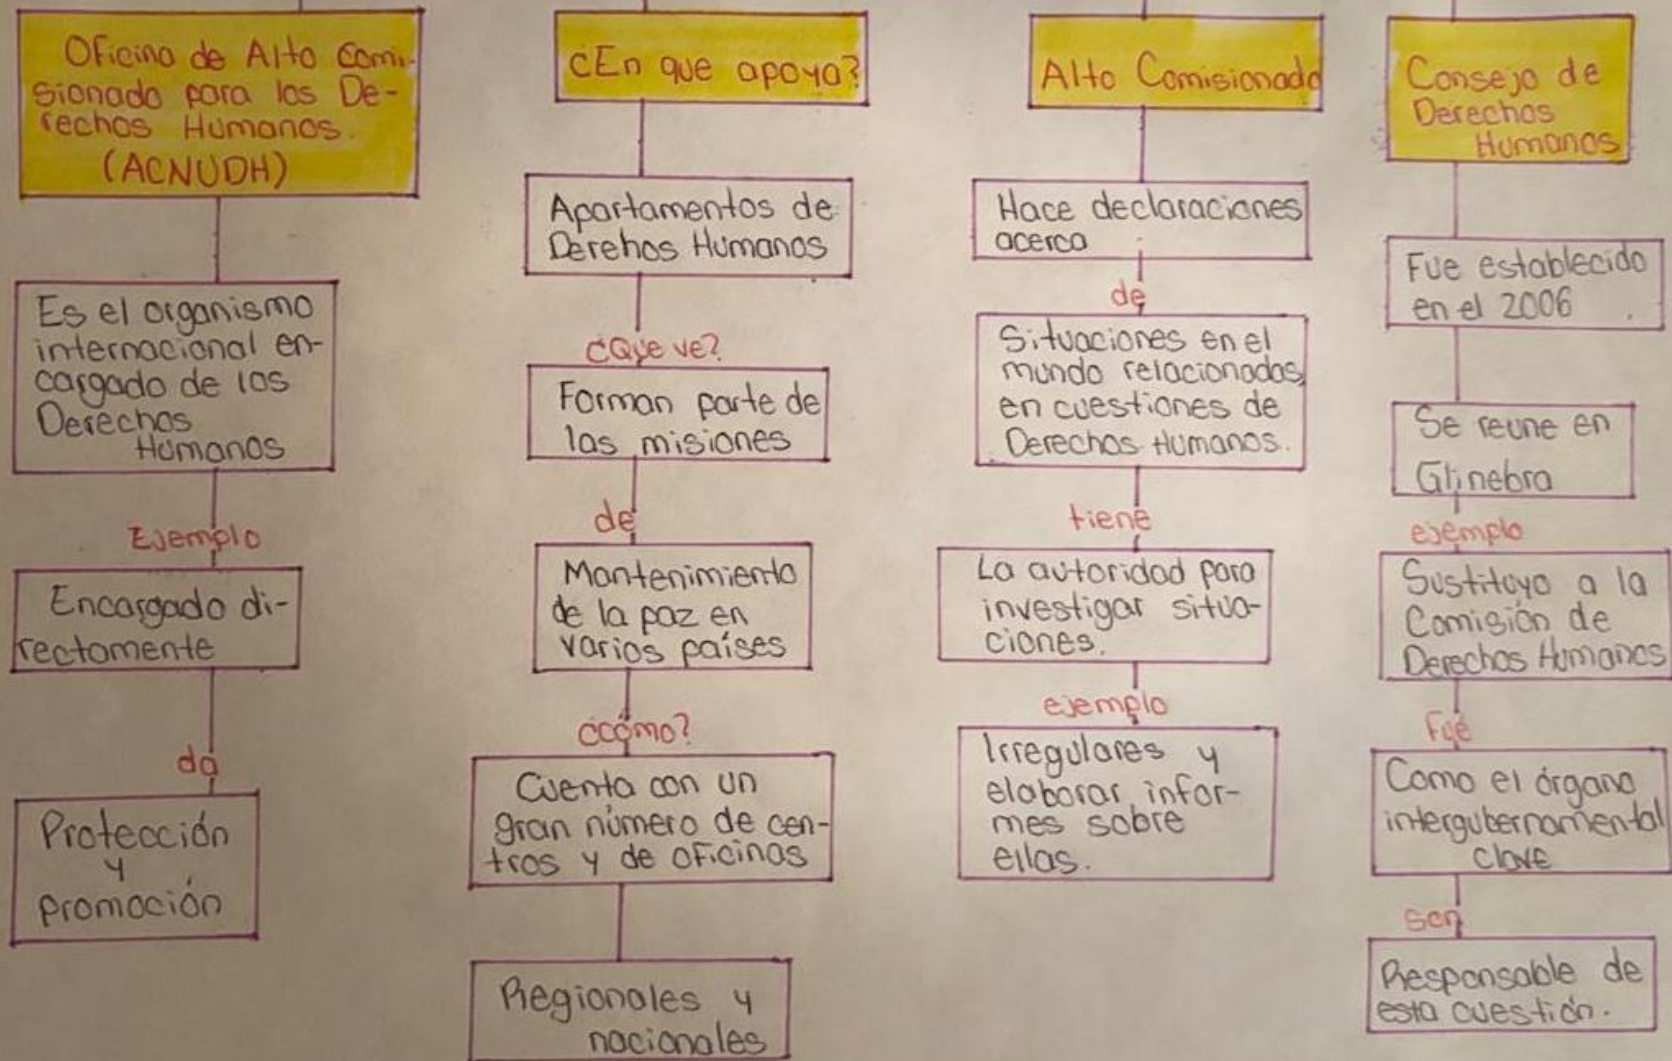 Oficina de Alto Comi-
sionado para los De-
rechos Humanos.
(ACNUDH)
Es el organismo
internacional en-
cargado de los
Derechos
Humanos
Ejemplo
Encargado di-
rectamente
da
Protección
y
promoción
¿En que apoya?
Apartamentos de
Derehos Humanos
¿Que ve?
Forman parte de
las misiones
de
Mantenimiento
de la paz en
varios países
¿cómo?
Cuenta con un
gran número de cen-
tros y de oficinas
Regionales y
nacionales
Alto Comisionado
Hace declaraciones
acerca
de
Situaciones en el
mundo relacionadas
en cuestiones de
Derechos Humanos.
tiene
La autoridad para
investigar situa-
ciones.
ejemplo
Irregulares y
elaborar infor-
mes sobre
ellas.
Consejo de
Derechos
Humanos
Fue establecido
en el 2006
Se reune en
Ginebra
ejemplo
Sustituyo a la
Comisión de
Derechos Humanos
Fue
Como el órgano
intergubernamental
clave
son
Responsable de
esta cuestión.